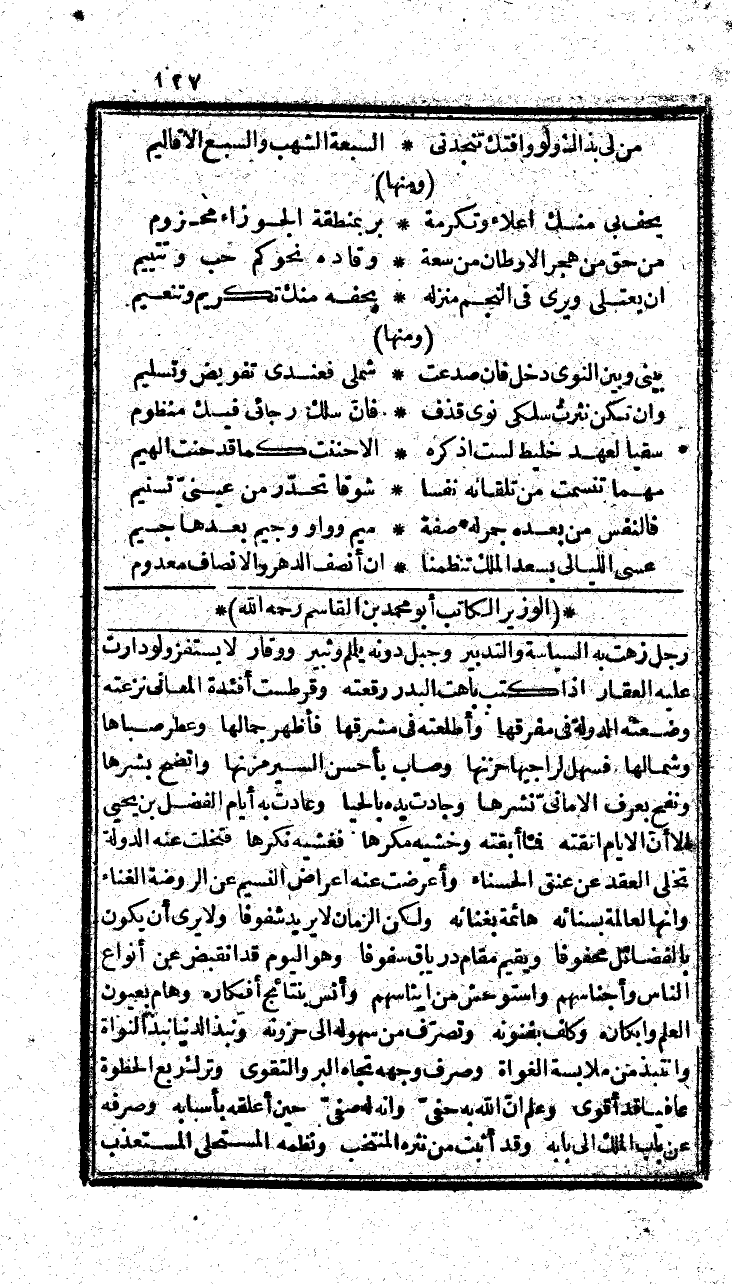 ١٢٧
من لى بذالذ ولو وافتك تنجدنى * السبعة الشهب والسبع الاقاليم
(ومنها)
يحف بى منك اعلاء وتكرمة * بر بمنطقة الجوزاء محزوم
من حق من هجر الاوطان من سعة * وقاده نحوكم حب وتتييم
ان يعتلى ويرى فى النجم منزله * يحفه منك تكريم وتنعيم
(ومنها)
بينى وبين النوى دخل فان صدعت * شملى فعندى تفويض وتسليم
وان تكن نثرت سلكى نوى قذف * فان سلك رجائى فيك منظوم
سقيا لعهد خليط لست اذكره * الا حننت كما قد حنت الهيم
مهما تنسمت من تلقائه نفسا * شوقا تحدر من عينىّ تسنيم
فالنفس من بعده جر له صفة * ميم وواو وجيم بعدها جيم
عسى الليالى بسعد الملك تنظمنا * ان أنصف الدهر والانصاف معدوم
*(الوزير الكاتب أبو محمد بن القاسم رحمه الله)*
رجل زهت به السياسة والتدبير وجبل دونه يلملم وثبير ووقار لا يستفز ولو دارت
عليه العقار اذا كتب باهت البدر رقعته وقرطست أفئدة المعانى نزعته
وضعته الدولة فى مفرقها وأطلعته فى مشرقها فأظهر جمالها وعطر صباها
وشمالها فسهل لراجيها حزنها وصاب بأحسن السير مزنها واتضح بشرها
ونفح بعرف الامانىّ نشرها وجادت يده بالحيا وعادت به أيام الفضل بن يحيى
الا أن الايام اتقته فما أبقته وخشيه مكرها فغشيه نكرها فتخلت عنه الدولة
تخلى العقد عن عنق الحسناء وأعرضت عنه اعراض النسيم عن الروضة الغناء
وانها لعالمة بسنائه هائمة بغنائه ولكن الزمان لا يريد شفوفا ولا يرى أن يكون
بالفضائل محفوفا ويقيم مقام درياق سفوفا وهو اليوم قد انقبض عن أنواع
الناس وأجناسهم واستوحش من ايناسهم وأنس بنتائج أفكاره وهام بعيون
العلم وابكاره وكلف بفنونه وتصرّف من سهوله الى حزونه ونبذ الدنيا نبذ النواة
وانتبذ من ملابسة الغواة وصرف وجهه تجاه البر والتقوى وترك ربع الحظوة
عافيا قد أقوى وعلم انّ الله به حفىّ وانه له صفىّ حين أعلقه بأسبابه وصرفه
عن باب الملك الى بابه وقد أثبت من نثره المنتخب ونظمه المستحلى المستعذب